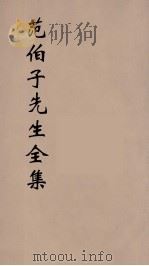 范伯子先生全集
mtoou.info